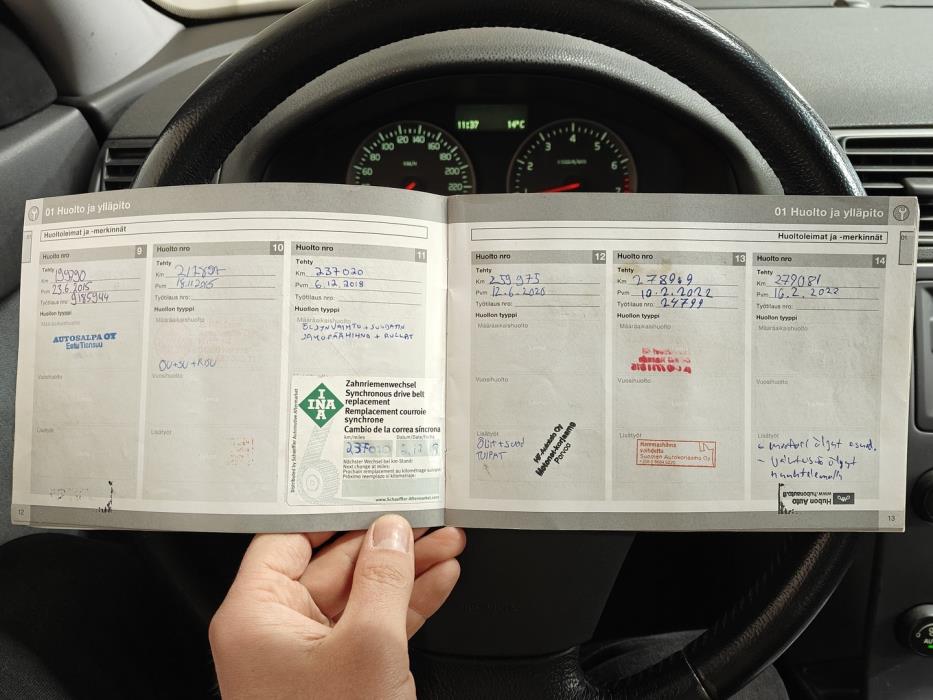 11:37 14°C
60 80 100 120 140 160 180 200 220
km/h
1 2 3 4 5 6 7
01 Huolto ja ylläpito
Huoltoleimat ja -merkinnät
Huolto nro 9
Tehty
Km
Pvm 23.6.2015
Työtilaus nro: 9185944
Huollon tyyppi
Määräaikaishuolto
AUTOSALPA OY
Vuosihuolto
Lisätyöt
Huolto nro 10
Tehty
Km
Pvm
Työtilaus nro:
Huollon tyyppi
Määräaikaishuolto
Vuosihuolto
Lisätyöt
Huolto nro 11
Tehty
Km 237020
Pvm 6.12.2018
Työtilaus nro:
Huollon tyyppi
Määräaikaishuolto
ÖLJYNVAIHTO + SUODATIN
JAKOPÄÄHIHNA + RULLAT
INA
INA
Zahnriemenwechsel
Synchronous drive belt
replacement
Remplacement courroie
synchrone
Cambio de la correa síncrona
km/miles Datum/Date/Fecha
237020
Nächster Wechsel bei km-Stand:
Next change at miles:
Prochain remplacement au kilométrage suivant:
Próximo reemplazo si kilometraje:
www.Schaeffler-Aftermarket.com
Distributed by Schaeffler Automotive Aftermarket
12
01 Huolto ja ylläpito
Huoltoleimat ja -merkinnät
01
Huolto nro 12
Tehty
Km 259975
Pvm 12.6.2020
Työtilaus nro:
Huollon tyyppi
Määräaikaishuolto
Vuosihuolto
Lisätyöt
MP-Autotalo Oy
Porvoo
Huolto nro 13
Tehty
Km 278969
Pvm 10.2.2022
Työtilaus nro: 24799
Huollon tyyppi
Määräaikaishuolto
Vuosihuolto
Lisätyöt
Hammashihna
vaihdettu
Suomen Autokorjaamo Oy
Huolto nro 14
Tehty
Km 279081
Pvm 16.2.2022
Työtilaus nro:
Huollon tyyppi
Määräaikaishuolto
Vuosihuolto
Lisätyöt
- moottori öljyt + suod.
öljyt
huuhtelemalla
Hubon Auto
www.hubonauto.fi
13